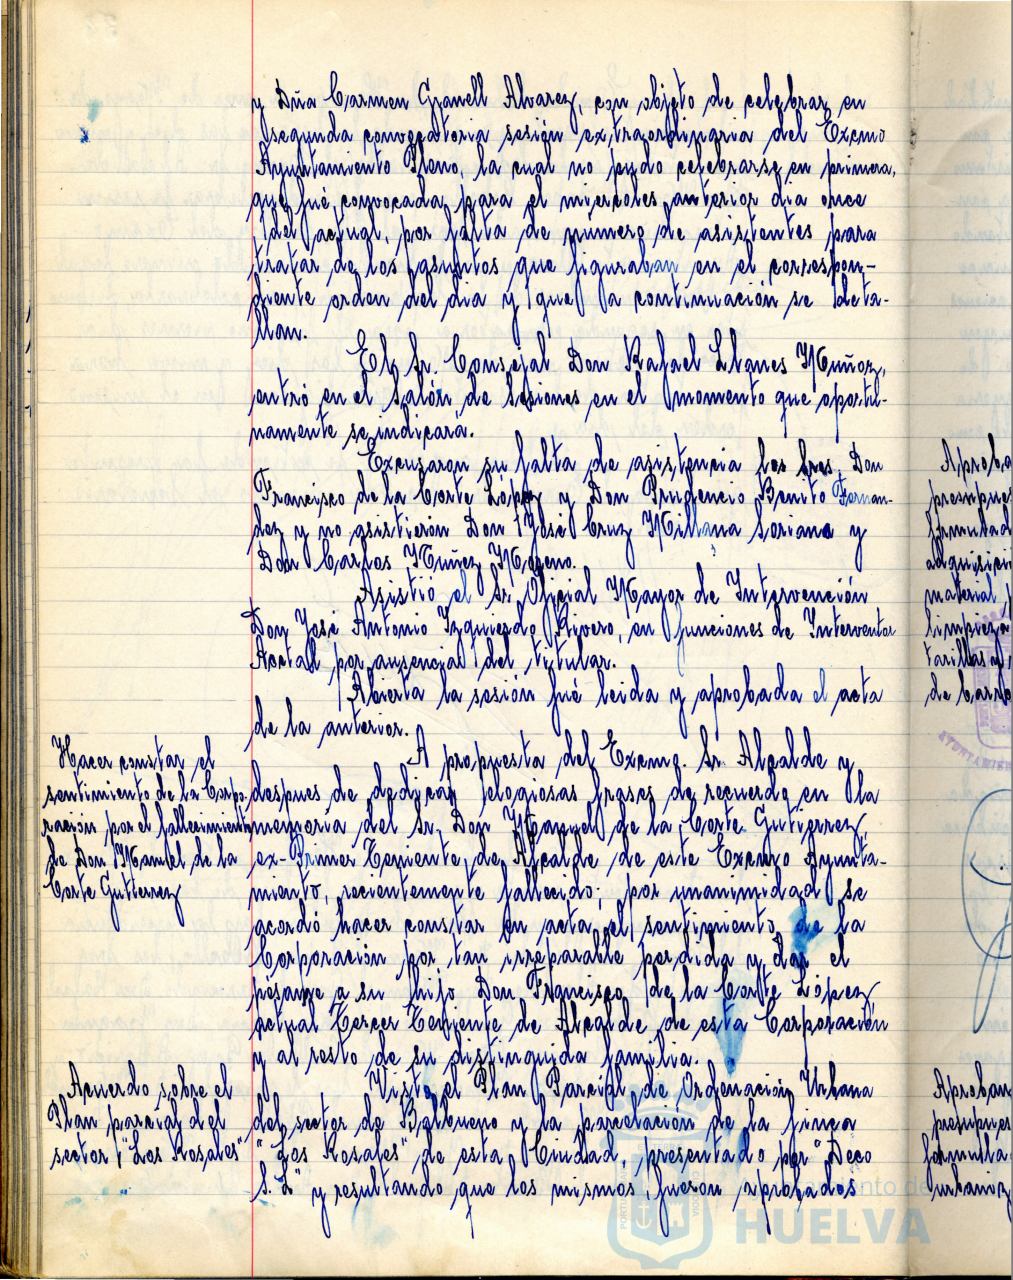 y Dña Carmen Granell Alvarez, con objeto de celebrar en
segunda convocatoria sesión extraordinaria del Excmo
Ayuntamiento Pleno, la cual no pudo celebrarse en primera,
que fué convocada para el miercoles anterior dia once
del actual, por falta de numero de asistentes para
tratar de los asuntos que figuraban en el correspon-
diente orden del dia y que a continuación se deta-
llan.
El Sr. Consejal Don Rafael Llanes Muñoz,
entró en el Salón de Sesiones en el momento que oportu-
namente se indicara.
Excusaron su falta de asistencia los Sres. Don
Francisco de la Corte López y Don Prudencio Benito Fernan-
dez y no asistieron Don José Cruz Millana Soriano y
Don Carlos Muñoz Moreno.
Asistió el Sr. Oficial Mayor de Intervención
Don José Antonio Izquierdo Rivero, en funciones de Interventor
Acctal por ausencia del titular.
Abierta la sesión fué leida y aprobada el acta
de la anterior.
Hacer constar el
sentimiento de la Corpo-
ración por el fallecimiento
de Don Manuel de la
Corte Gutierrez
A propuesta del Excmo. Sr. Alcalde y
despues de dedicar elogiosas frases de recuerdo en la
memoria del Sr. Don Manuel de la Corte Gutierrez,
ex-Primer Teniente de Alcalde de este Excmo Ayunta-
miento, recientemente fallecido; por unanimidad se
acordó hacer constar en acta el sentimiento de la
Corporación por tan irreparable perdida y dar el
pésame a su hijo Don Francisco de la Corte López,
actual Tercer Teniente de Alcalde de esta Corporación
y al resto de su distinguida familia.
Acuerdo sobre el
Plan parcial del
sector "Los Rosales"
Visto el Plan Parcial de Ordenación Urbana
del sector de Balbueno y la parcelación de la finca
"Los Rosales" de esta Ciudad, presentado por "Deco
S.L" y resultando que los mismos fueron aprobados
Aproba
presupues
formulad
adquisici
material p
limpieza
de Carbo
Aproban
presupues
formula
urbaniz
Ayuntamiento de
HUELVA